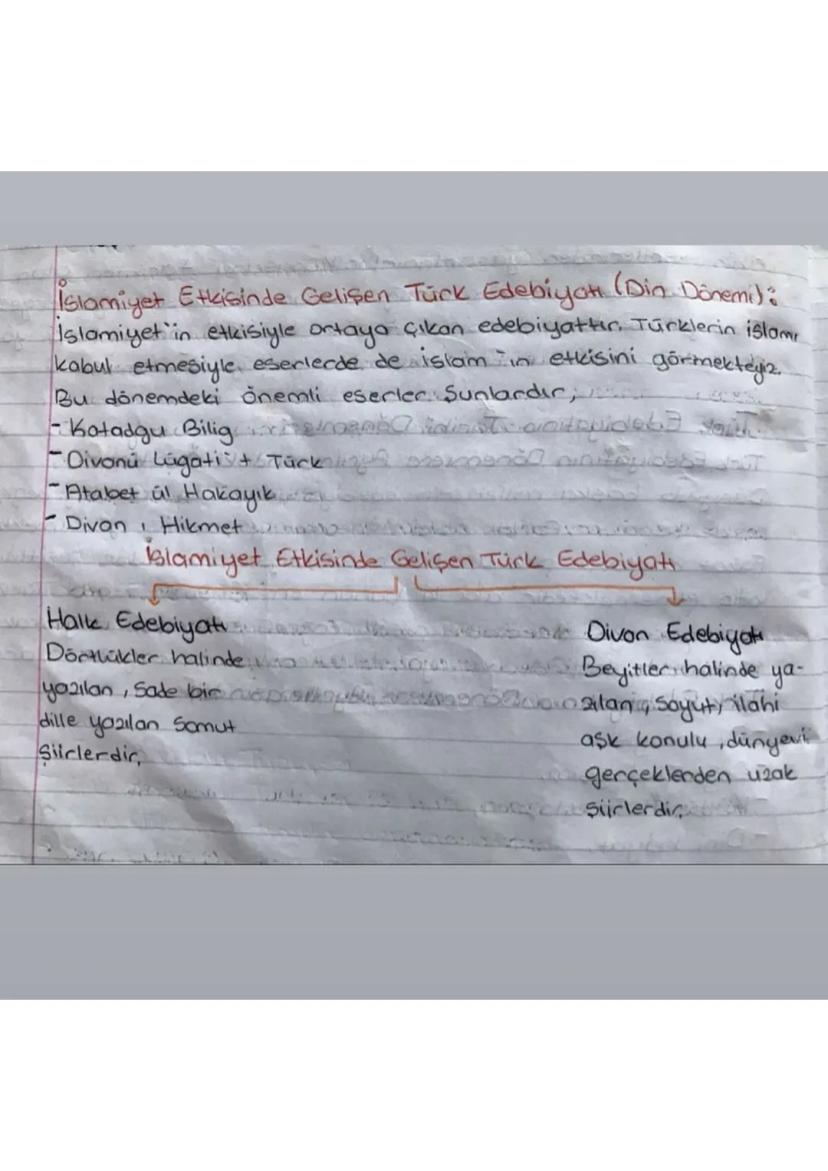 İslamiyet Etkisinde Gelişen Türk Edebiyatı (Din Dönemi):
İslamiyet'in etkisiyle ortaya çıkan edebiyattır. Türklerin islamı
kabul etmesiyle eserlerde de İslam'ın etkisini görmekteyiz.
Bu dönemdeki önemli eserler Şunlardır;
- Kotadgu Bilig
- Divanü Lügati't Türk
- Atabet ül Hakayık
- Divan ı Hikmet
İslamiyet Etkisinde Gelişen Türk Edebiyatı
Halk Edebiyatı
Dörtlükler halinde
yazılan, sade bir
dille yazılan somut
şiirlerdir.
Divan Edebiyatı
Beyitler halinde ya-
zılan, soyut, ilahi
aşk konulu, dünyevi
gerçeklerden uzak
şiirlerdir.